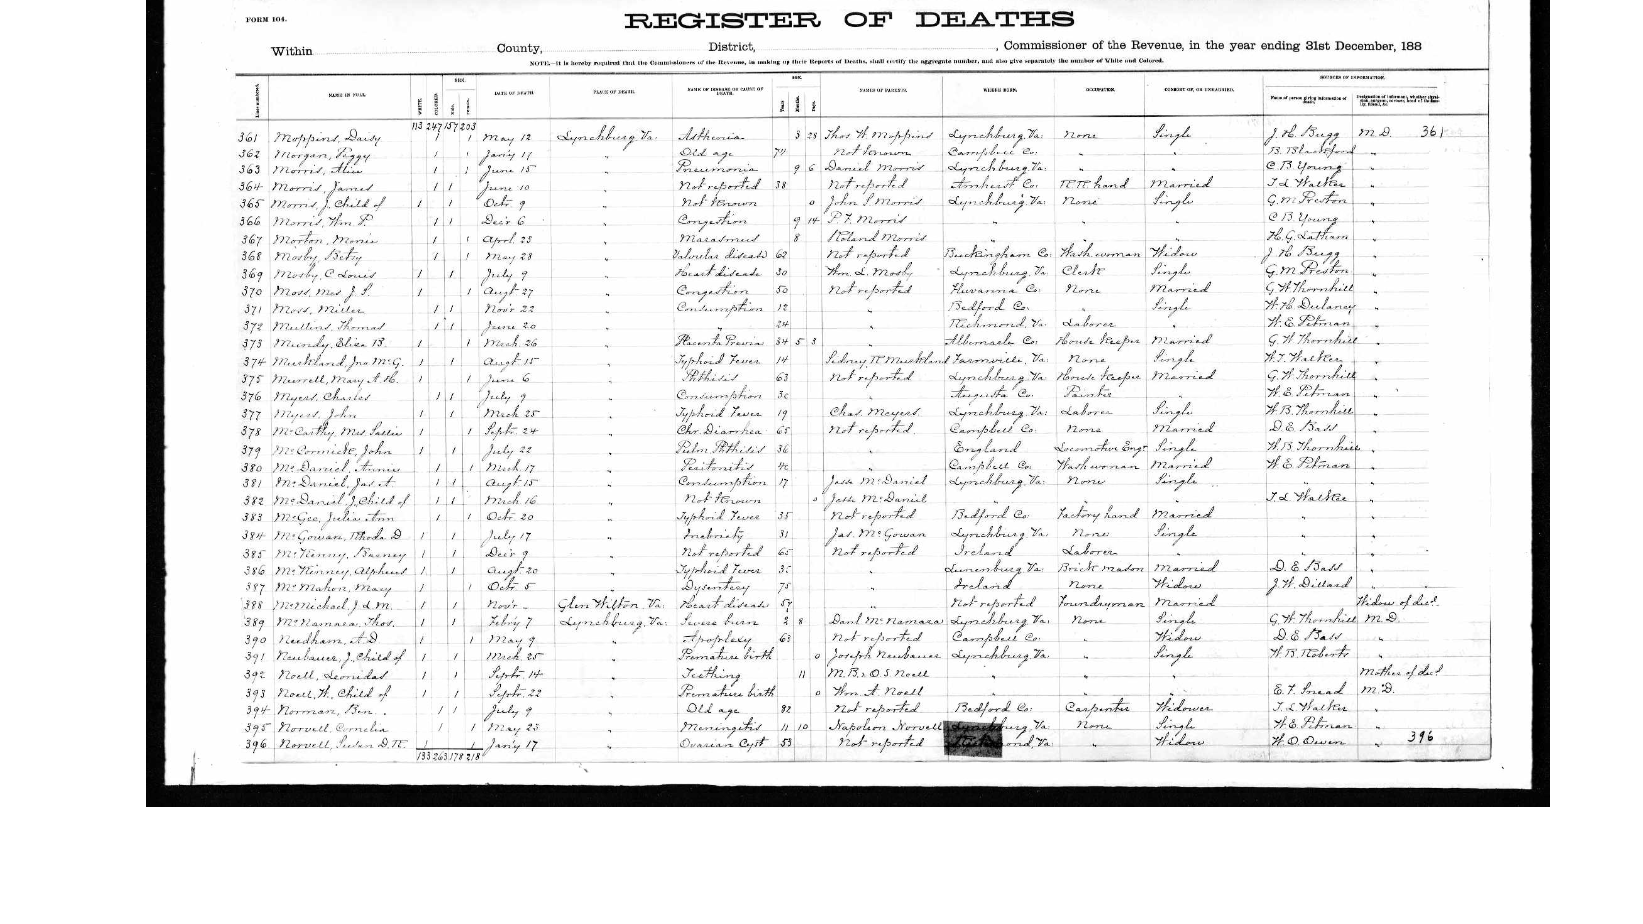 FORM 104.
REGISTER OF DEATHS
Within County, District, , Commissioner of the Revenue, in the year ending 31st December, 188
NOTE.—It is hereby required that the Commissioners of the Revenue, in making up their Reports of Deaths, shall certify the aggregate number, and also give separately the number of White and Colored.
SEX. AGE. SOURCES OF INFORMATION.
NAME IN FULL. WHITE. COLORED. Male. Female. DATE OF DEATH. PLACE OF DEATH. NAME OF DISEASE OR CAUSE OF DEATH. Years Months Days. NAMES OF PARENTS. WHERE BORN. OCCUPATION. CONSORT OF, OR UNMARRIED. Name of person giving information of death.
113 247 157 203
361 Moppins, Daisy 1 1 May 12 Lynchburg, Va. Asthenia 3 28 Thos H. Moppins Lynchburg, Va. None Single J. H. Bugg M.D. 361
362 Morgan, Peggy 1 1 Jan'y 11 " Old age Not Known Campbell Co. " " "
363 Morris, Alice 1 1 June 15 " Pneumonia 9 6 Daniel Morris Lynchburg, Va. " " C B Young "
364 Morris, James 1 1 June 10 " Not reported 38 Not reported Amherst Co. RR hand Married T L Walker "
365 Morris, J. Child of 1 1 Octr 9 " Not Known 0 John P. Morris Lynchburg, Va. None Single G. M. Preston "
366 Morris, Wm P. 1 1 Decr 6 " Congestion 9 14 P. F. Morris " " " C B Young "
367 Morton, 1 1 April 23 " Marasmus 8 Roland Morris " " " H. G. Latham "
368 Mosby, Betsy 1 1 May 28 " Valvular disease 62 Not reported Buckingham Co. Washwoman Widow J H Bugg "
369 Mosby, C Louis 1 1 July 9 " Heart disease 30 Wm. L. Mosby Lynchburg, Va. Clerk Single G. M Preston "
370 Moss, Mrs J. S. 1 1 Augt 27 " Congestion 50 Not reported Fluvanna Co. None Married G W Thornhill "
371 Moss, Miller 1 1 Novr 22 " Consumption 12 " Bedford Co. " Single W. H. Dulaney "
372 Mullins, Thomas 1 1 June 20 " " 24 " Richmond, Va. Laborer " W. E Pitman "
373 Mundy, Eliza B. 1 1 Mch 26 " Placenta Previa 34 5 3 " Albemarle Co. House Keeper Married G. W Thornhill "
374 Jno McG. 1 1 Augt 15 " Typhoid Fever 14 Sidney R. Farmville, Va. None Single W. T. Walker "
375 Murrell, Mary A. H. 1 1 June 6 " Phthisis 63 Not reported Lynchburg, Va House Keeper Married G. W Thornhill "
376 Myers, Charles 1 1 July 9 " Consumption 30 " Augusta Co. Painter " W. E Pitman "
377 Myers, John 1 1 Mch 25 " Typhoid Fever 19 Chas. Meyers Lynchburg, Va. Laborer Single W. B. Thornhill "
378 McCarthy, Mrs. Sallie 1 1 Septr. 24 " Chr. Diarrhea 65 Not reported. Campbell Co. None Married D. E. Bass "
379 McCormick, John 1 1 July 22 " Pulm Phthisis 36 " England Locomotive Engr Single W. B. Thornhill "
380 McDaniel, Annie 1 1 Mch 17 " Peritonitis 40 " Campbell Co. Washwoman Married W. E Pitman "
381 McDaniel, Jas A 1 1 Augt 15 " Consumption 17 Jesse McDaniel Lynchburg, Va. None Single " "
382 McDaniel, J. Child of 1 1 Mch 16 " Not Known 0 Jesse McDaniel " " " T. L Walker "
383 McGee, Julia Ann 1 1 Octr. 20 " Typhoid Fever 35 Not reported Bedford Co. Factory hand Married " "
384 McGowan, Rhoda D 1 1 July 17 " Inebriety 31 Jas. McGowan Lynchburg, Va None Single " "
385 McKenny, Barney 1 1 Decr 9 " Not reported 65 Not reported Ireland Laborer " " "
386 McKinney, Alpheus 1 1 Augt 20 " Typhoid Fever " Lunenburg, Va. Brick mason Married D. E Bass "
387 McMahon, Mary 1 1 Octr 5 " Dysentery 75 " Ireland None Widow J. W. Dillard "
388 McMichael, J. L. M. 1 1 Novr - Glen Wilton, Va. Heart disease 57 " Not reported Foundryman Married Widow of decd.
389 McNamara, Thos. 1 1 Feb'y 7 Lynchburg, Va. Severe burn 2 8 Danl McNamara Lynchburg, Va. None Single G. W Thornhill M.D.
390 Needham, A D 1 1 May 9 " Apoplexy 63 Not reported Campbell Co. " Widow D. E Bass "
391 Neubauer, J. Child of 1 1 Mch. 25 " Premature birth 0 Joseph Neubauer Lynchburg, Va. " Single W. R. Roberts "
392 Noell, Leonidas 1 1 Septr. 14 " Teething 11 M. B. & O. S. Noell " " " Mother of decd
393 Noell, W. Child of 1 1 Septr. 22 " Premature birth 0 Wm. A. Noell " " " E. T. Snead M.D.
394 Norman, Ben. 1 1 July 9 " Old age 82 Not reported Bedford Co. Carpenter Widower T. L Walker "
395 Norvell, Cornelia 1 1 May 23 " Meningitis 11 10 Napoleon Norvell Lynchburg, Va. None Single W. E. Pitman "
396 Norvell, Susan D. R. 1 1 Jan'y 17 " Ovarian Cyst 53 Not reported Richmond, Va " Widow W. O. Owen " 396
133 263 178 218